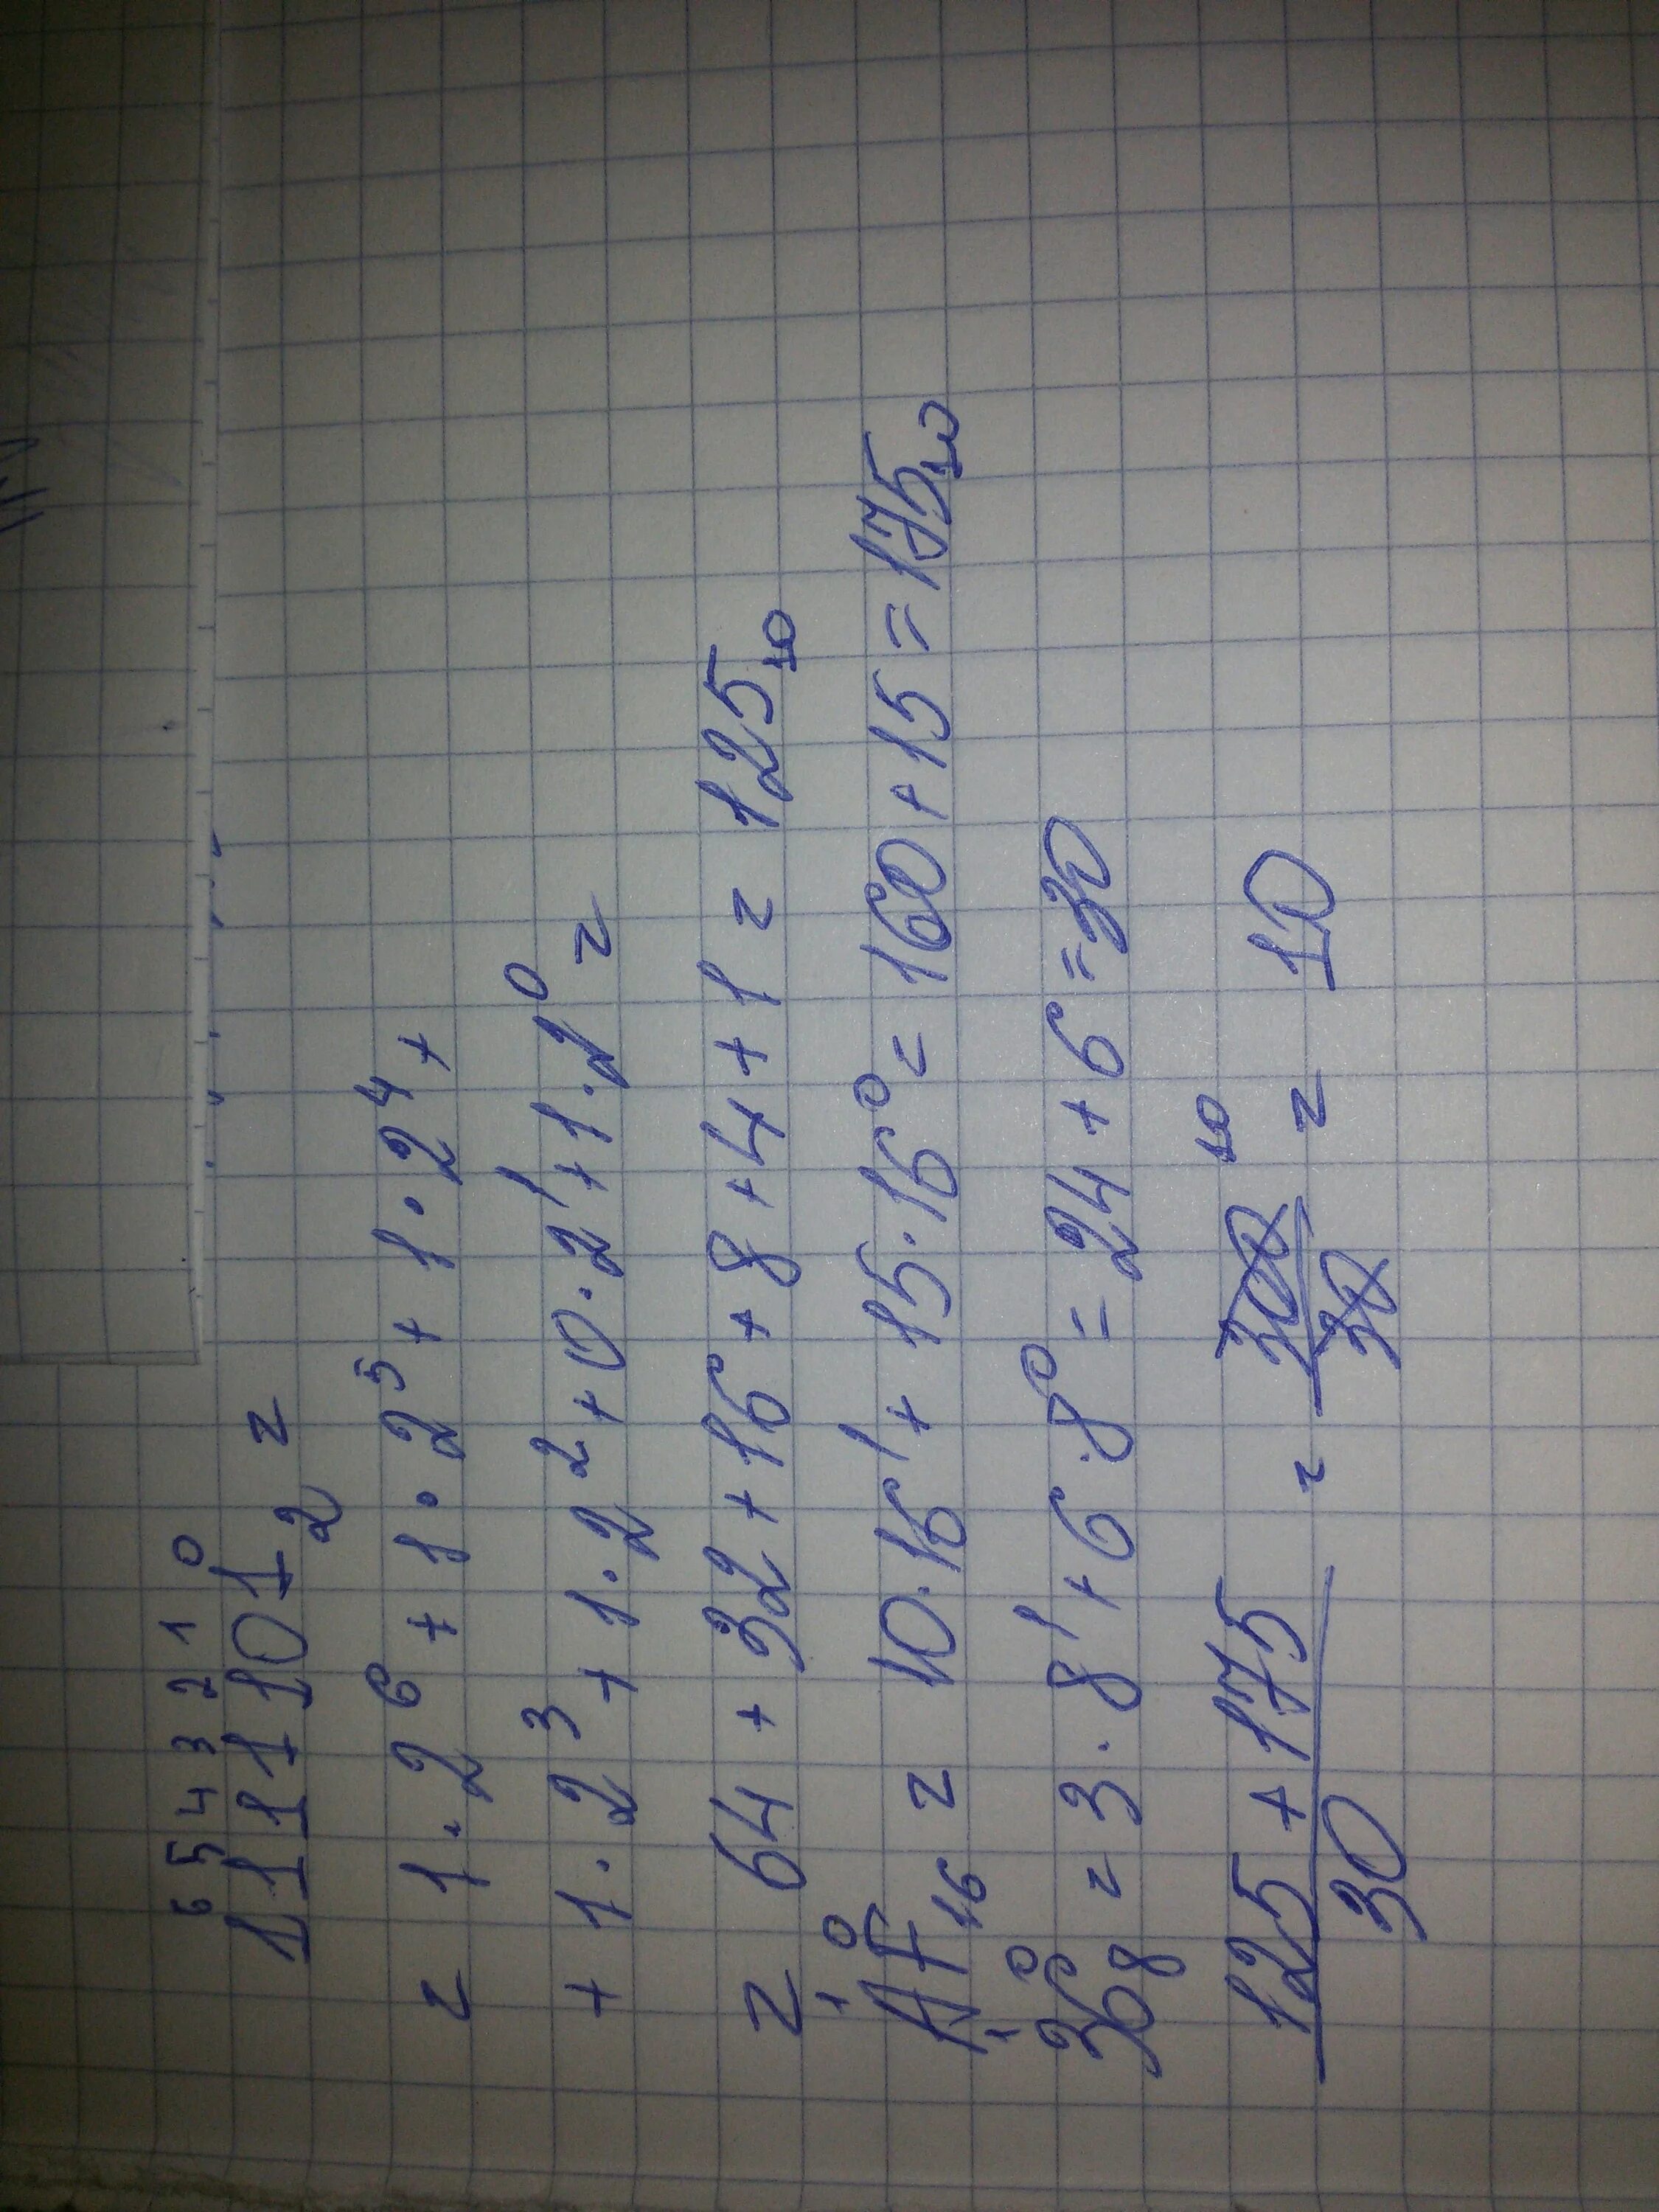 6 5 4 3 2 1 0
1111101₂ =
= 1·2⁶ + 1·2⁵ + 1·2⁴ +
+ 1·2³ + 1·2² + 0·2¹ + 1·2⁰ =
= 64 + 32 + 16 + 8 + 4 + 1 = 125₁₀
1 0
AF₁₆ = 10·16¹ + 15·16⁰ = 160 + 15 = 175₁₀
1 0
36₈ = 3·8¹ + 6·8⁰ = 24 + 6 = 30
10
125 + 175 = 300 = 10
30 30